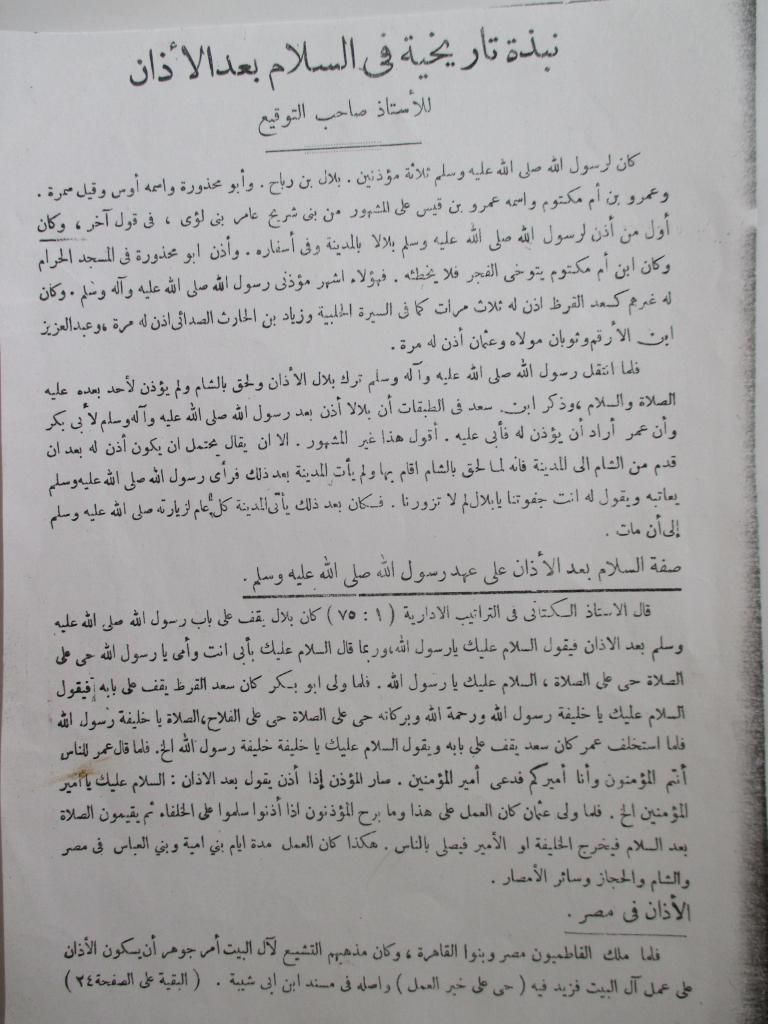 نبذة تاريخية فى السلام بعد الأذان
للأستاذ صاحب التوقيع
كان لرسول الله صلى الله عليه وسلم ثلاثة مؤذنين . بلال بن رباح . وأبو محذورة واسمه أوس وقيل سمرة .
وعمرو بن أم مكتوم واسمه عمرو بن قيس على المشهور من بنى شريح عامر بنى لؤى ، فى قول آخر ، وكان
أول من أذن لرسول الله صلى الله عليه وسلم بلالا بالمدينة وفى أسفاره . وأذن ابو محذورة فى المسجد الحرام
وكان ابن أم مكتوم يتوخى الفجر فلا يخطئه . فهؤلاء اشهر مؤذنى رسول الله صلى الله عليه وآله وسلم . وكان
له غيرهم كسعد القرظ اذن له ثلاث مرات كما فى السيرة الحلبية وزياد بن الحارث الصدائى اذن له مرة ، وعبدالعزيز
ابن الأرقم وثوبان مولاه وعثمان أذن له مرة .
فلما انتقل رسول الله صلى الله عليه وآله وسلم ترك بلال الأذان ولحق بالشام ولم يؤذن لأحد بعده عليه
الصلاة والسلام ، وذكر ابن سعد فى الطبقات أن بلالا أذن بعد رسول الله صلى الله عليه وآله وسلم لأبى بكر
وأن عمر أراد أن يؤذن له فأبى عليه . أقول هذا غير المشهور . الا ان يقال يحتمل ان يكون أذن له بعد ان
قدم من الشام الى المدينة فانه لما لحق بالشام اقام بها ولم يأت المدينة بعد ذلك فرأى رسول الله صلى الله عليه وسلم
يعاتبه ويقول له انت جفوتنا يابلال لم لا تزورنا . فكان بعد ذلك يأتى المدينة كل عام لزيارته صلى الله عليه وسلم
إلى أن مات .
صفة السلام بعد الأذان على عهد رسول الله صلى الله عليه وسلم .
قال الاستاذ الكتانى فى التراتيب الادارية ( ١ : ٧٥ ) كان بلال يقف على باب رسول الله صلى الله عليه
وسلم بعد الاذان فيقول السلام عليك يارسول الله ، وربما قال السلام عليك بأبى انت وأمى يا رسول الله حى على
الصلاة حى على الصلاة ، السلام عليك يا رسول الله . فلما ولى ابو بكر كان سعد القرظ يقف على بابه فيقول
السلام عليك يا خليفة رسول الله ورحمة الله وبركاته حى على الصلاة حى على الفلاح ، الصلاة يا خليفة رسول الله
فلما استخلف عمر كان سعد يقف على بابه ويقول السلام عليك يا خليفة خليفة رسول الله الخ . فلما قال عمر للناس
أنتم المؤمنون وأنا أميركم فدعى أمير المؤمنين . صار المؤذن إذا أذن يقول بعد الاذان : السلام عليك يا أمير
المؤمنين الخ . فلما ولى عثمان كان العمل على هذا وما برح المؤذنون اذا أذنوا سلموا على الخلفاء ثم يقيمون الصلاة
بعد السلام فيخرج الخليفة او الأمير فيصلى بالناس . هكذا كان العمل مدة ايام بني امية وبني العباس فى مصر
والشام والحجاز وسائر الأمصار .
الأذان فى مصر .
فلما ملك الفاطميون مصر وبنوا القاهرة ، وكان مذهبهم التشيع لآل البيت أمر جوهر أن يكون الأذان
على عمل آل البيت فزيد فيه ( حى على خير العمل ) واصله فى مسند ابن ابى شيبة . ( البقية على الصفحة ٢٤ )